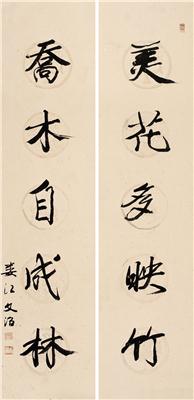 美花多映竹
喬木自成林
婁江文治